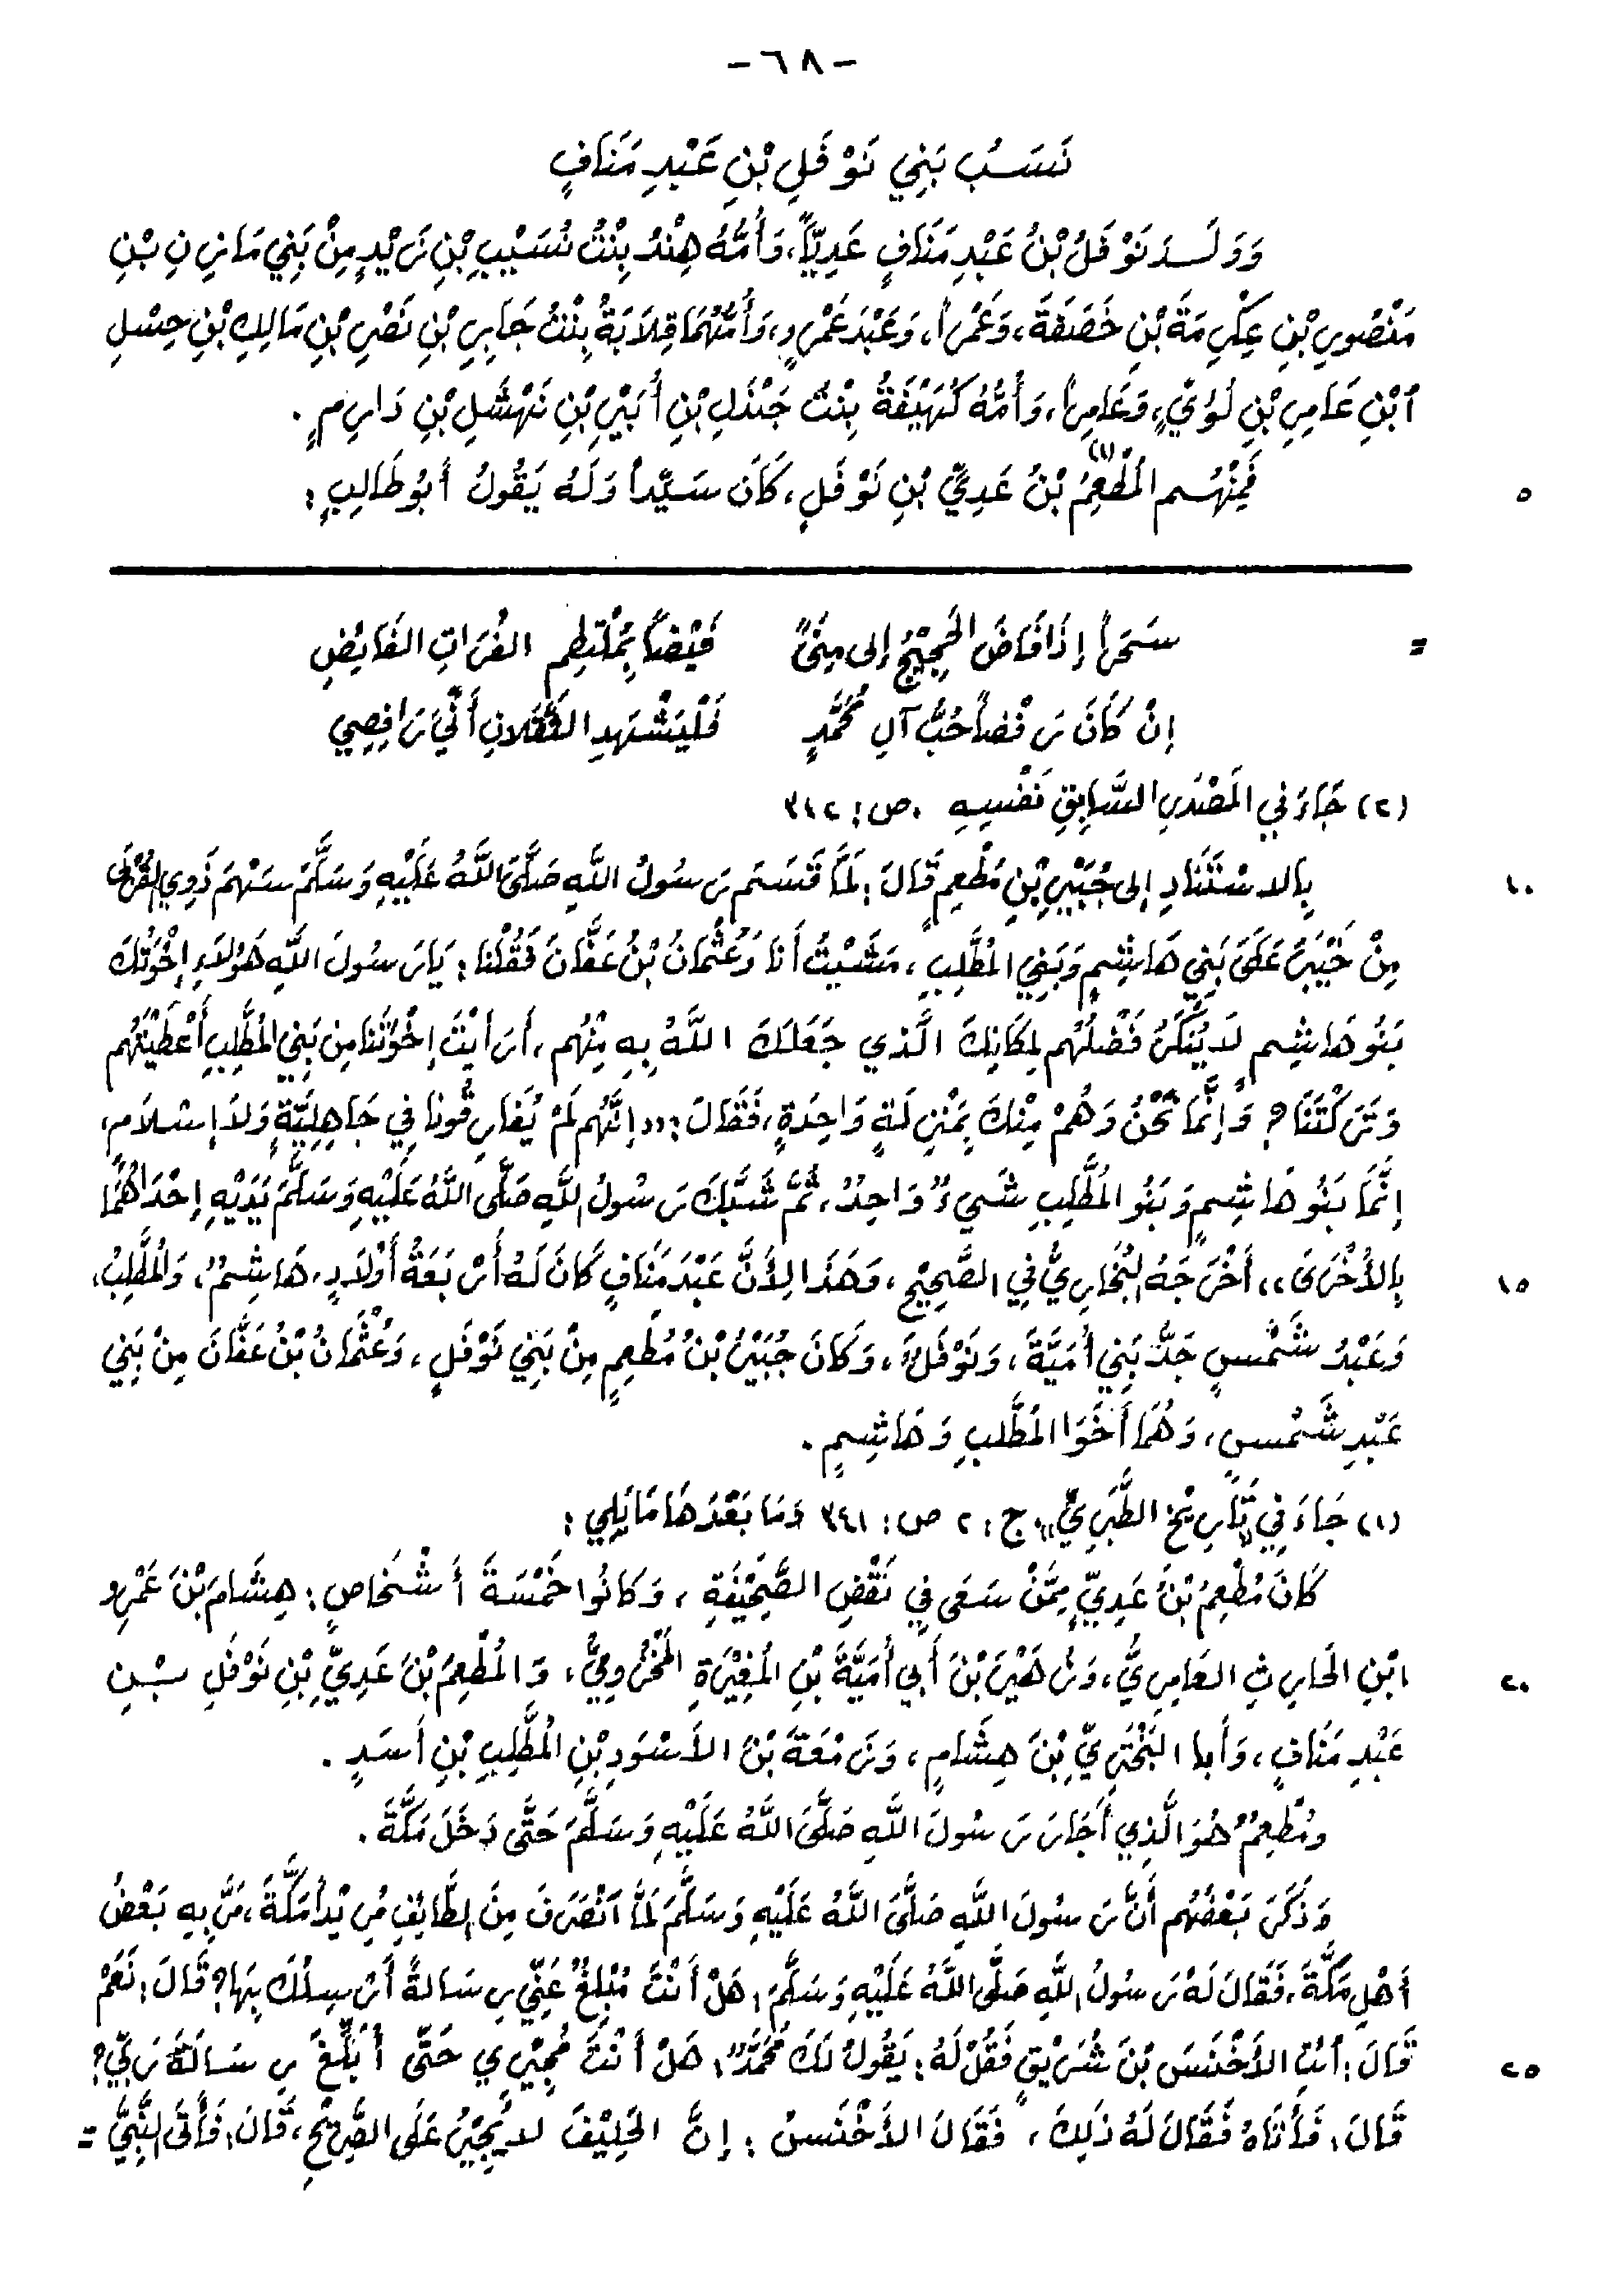 - ٦٨ -
نَسَبُ بَنِي نَوْفَلِ بْنِ عَبْدِ مَنَافٍ
وَوَلَدَ نَوْفَلُ بْنُ عَبْدِ مَنَافٍ عَدِيّاً، وَأُمُّهُ هِنْدُ بِنْتُ نُسَيْبِ بْنِ زَيْدٍ مِنْ بَنِي مَازِنِ بْنِ
مَنْصُورِ بْنِ عِكْرِمَةَ بْنِ خَصَفَةَ، وَعَمْراً، وَعَبْدَ عَمْرٍو، وَأُمُّهُمَا قِلَابَةُ بِنْتُ جَابِرِ بْنِ نَصْرِ بْنِ مَالِكِ بْنِ حِسْلِ
ٱبْنِ عَامِرِ بْنِ لُؤَيٍّ، وَعَامِراً، وَأُمُّهُ كُهَيْفَةُ بِنْتُ جَنْدَلِ بْنِ أُبَيْرِ بْنِ نَهْشَلِ بْنِ دَارِمٍ .
فَمِنْهُم المُطْعِمُ (١) بْنُ عَدِيِّ بْنِ نَوْفَلٍ، كَانَ سَيِّداً وَلَهُ يَقُولُ أَبُو طَالِبٍ : ٥
= سَحَراً إِذَا فَاضَ الحَجِيْجُ إلى مِنًى فَيْضاً بِمُلْتَطِمِ الفُرَاتِ الفَائِضِ
إنْ كَانَ رَفْضاً حُبُّ آلِ مُحَمَّدٍ فَلْيَشْهَدِ الثَّقَلانِ أَنِّي رَافِضِي
(٢) جَاءَ فِي المَصْدَرِ السَّابِقِ نَفْسِهِ . ص: ٣٤٢
بِالاسْتَنَادِ إلى جُبَيْرِ بْنِ مُطْعِمٍ قَالَ: لَمَّا قَسَمَ رَسُولُ اللَّهِ صَلَّى اللَّهُ عَلَيْهِ وَسَلَّمَ سَهْمَ ذَوِي القُرْبَى ١٠
مِنْ خَيْبَرَ عَلَى بَنِي هَاشِمٍ وَبَنِي المُطَّلِبِ، مَشَيْتُ أَنَا وَعُثْمَانُ بْنُ عَفَّانَ فَقُلْنَا: يَارَسُولَ اللَّهِ هَؤُلَاءِ إِخْوَتُكَ
بَنُو هَاشِمٍ لَا يُنْكَرُ فَضْلُهُم لِمَكَانِكَ الَّذي جَعَلَكَ اللَّهُ بِهِ مِنْهُم، أَرَأَيْتَ إِخْوَتَنَا مِن بَنِي المُطَّلِبِ أَعْطَيْتَهُم
وَتَرَكْتَنَا؟ وَإنَّمَا نَحْنُ وَهُمْ مِنْكَ بِمَنْزِلَةٍ وَاحِدَةٍ، فَقَالَ: «إنَّهُم لَمْ يُفَارِقُونا فِي جَاهِلِيَّةٍ وَلاَ إسْلَامٍ،
إنَّمَا بَنُو هَاشِمٍ وَبَنُو المُطَّلِبِ شَيءٌ وَاحِدٌ، ثُمَّ شَبَّكَ رَسُولُ اللَّهِ صَلَّى اللَّهُ عَلَيْهِ وَسَلَّمَ يَدَيْهِ إحْدَاهُمَا
بِالأُخْرَى»، أَخْرَجَهُ البُخَارِيُّ فِي الصَّحِيْحِ، وَهَذَا لِأَنَّ عَبْدَ مَنَافٍ كَانَ لَهُ أَرْبَعَةُ أَوْلَادٍ، هَاشِمٌ، وَالمُطَّلِبُ، ١٥
وَعَبْدُ شَمْسٍ جَدُّ بَنِي أُمَيَّةَ، وَنَوْفَلٌ، وَكَانَ جُبَيْرُ بْنُ مُطْعِمٍ مِنْ بَنِي نَوْفَلٍ، وَعُثْمَانُ بْنُ عَفَّانَ مِنْ بَنِي
عَبْدِ شَمْسٍ، وَهُمَا أَخَوَا المُطَّلِبِ وَهَاشِمٍ .
(١) جَاءَ فِي "تَارِيْخِ الطَّبَرِيِّ". ج: ٢ ص: ٣٤١ وَمَا بَعْدَهَا مَا يَلِي :
كَانَ مُطْعِمُ بْنُ عَدِيٍّ مِمَّنْ سَعَى فِي نَقْضِ الصَّحِيْفَةِ، وَكَانُوا خَمْسَةَ أَشْخَاصٍ : هِشَامَ بْنَ عَمْرِو
ابْنِ الحَارِثِ العَامِرِيَّ، وَزُهَيْرَ بْنَ أَبِي أُمَيَّةَ بْنِ المُغِيْرَةِ المَخْزُومِيَّ، وَالمُطْعِمَ بْنَ عَدِيِّ بْنِ نَوْفَلِ بْنِ ٢٠
عَبْدِ مَنَافٍ، وَأبا البَخْتَرِيِّ بْنَ هِشَامٍ، وَزَمْعَةَ بْنَ الأَسْوَدِ بْنِ المُطَّلِبِ بْنِ أَسَدٍ .
ومُطْعِمٌ هُوَ الَّذِي أَجَارَ رَسُولَ اللَّهِ صَلَّى اللَّهُ عَلَيْهِ وَسَلَّمَ حَتَّى دَخَلَ مَكَّةَ .
وَذَكَرَ بَعْضُهُم أَنَّ رَسُولَ اللَّهِ صَلَّى اللَّهُ عَلَيْهِ وَسَلَّمَ لَمَّا ٱنْصَرَفَ مِنَ الطَّائِفِ مُرِيْداً مَكَّةَ، مَرَّ بِهِ بَعْضُ
أَهْلِ مَكَّةَ، فَقَالَ لَهُ رَسُولُ اللَّهِ صَلَّى اللَّهُ عَلَيْهِ وَسَلَّمَ: هَلْ أَنْتَ مُبْلِغٌ عَنِّي رِسَالةً أُرْسِلُكَ بِهَا؟ قَالَ: نَعَمْ
قَالَ: ٱئتِ الأَخْنَسَ بْنَ شُرَيْقٍ فَقُلْ لَهُ: يَقُولُ لَكَ مُحَمَّدٌ: هَلْ أَنْتَ مُجِيْرِي حَتَّى أُبَلِّغَ رِسَالَةَ رَبِّي؟ ٢٥
قَالَ: فَأَتَاهُ فَقَالَ لَهُ ذَلِكَ، فَقَالَ الأَخْنَسُ : إنَّ الحَلِيْفَ لا يُجِيْرُ عَلَى الصَّرِيْحِ، قَالَ: فَأَتَى النَّبِيَّ =